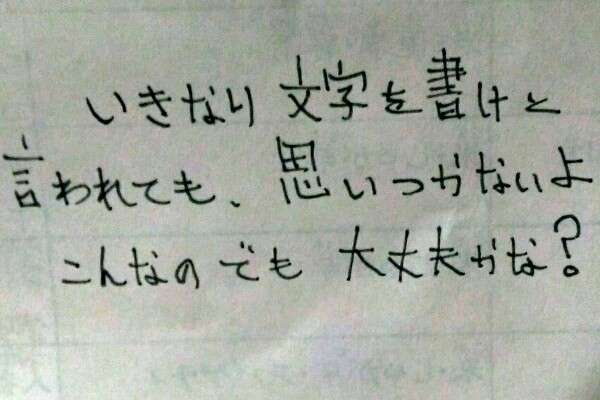 いきなり文字を書けと
言われても、思いつかないよ
こんなのでも大丈夫かな?